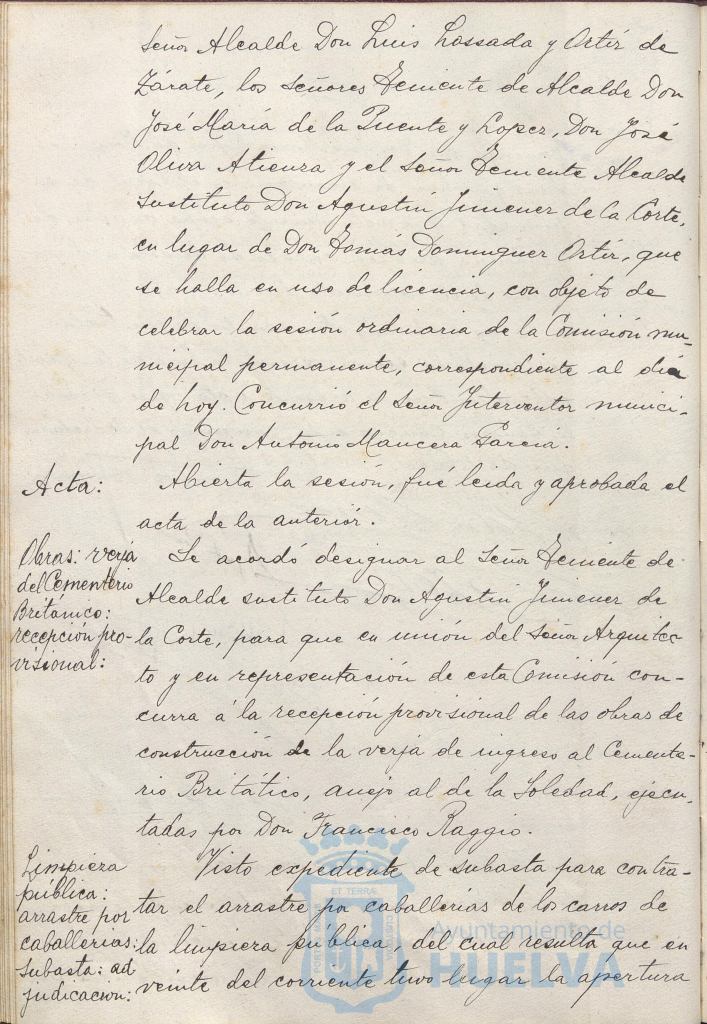 Señor Alcalde Don Luis Lossada y Ortíz de
Zárate, los Señores Teniente de Alcalde Don
José María de la Puente y Lopez, Don José
Oliva Atienza y el Señor Teniente Alcalde
sustituto Don Agustín Jimenez de la Corte,
en lugar de Don Tomás Dominguez Ortíz, que
se halla en uso de licencia, con objeto de
celebrar la sesión ordinaria de la Comisión mu-
nicipal permanente, correspondiente al día
de hoy. Concurrió el Señor Interventor munici-
pal Don Antonio Mancera García.
Acta:
Abierta la sesión, fué leida y aprobada el
acta de la anterior.
Obras: verja
del Cementerio
Británico:
recepción pro-
visional:
Se acordó designar al Señor Teniente de
Alcalde sustituto Don Agustín Jimenez de
la Corte, para que en unión del Señor Arquitec-
to y en representación de esta Comisión con-
curra á la recepción provisional de las obras de
construcción de la verja de ingreso al Cemente-
rio Britático, anejo al de la Soledad, ejecu-
tadas por Don Francisco Raggio.
Limpieza
pública:
arrastre por
caballerias:
subasta: ad
judicacion:
Visto expediente de subasta para contra-
tar el arrastre por caballerías de los carros de
la limpieza pública, del cual resulta que en
veinte del corriente tuvo lugar la apertura
ET TERRÆ
Ayuntamiento de
HUELVA